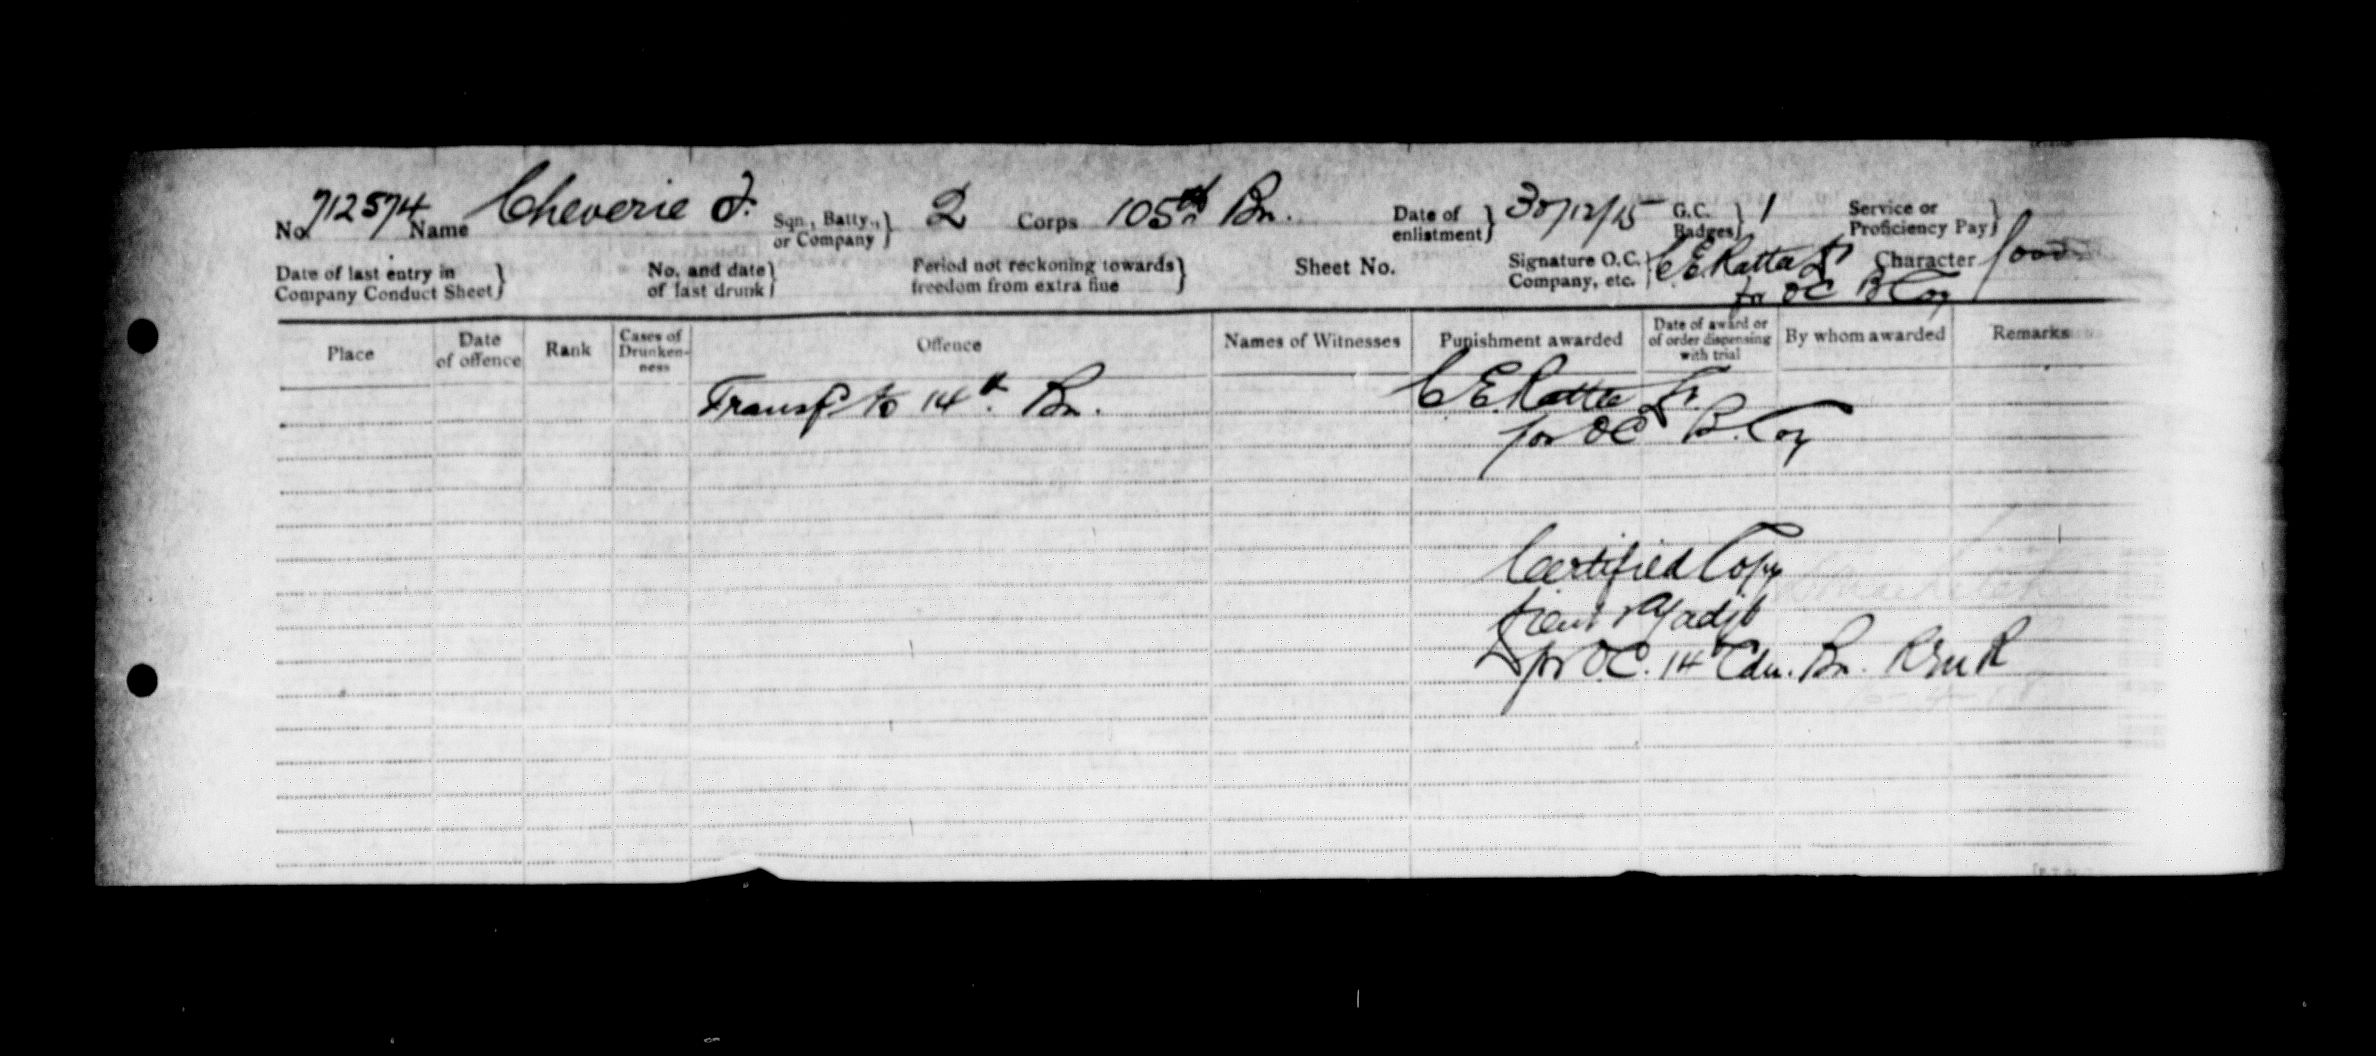 No. 712574 Name Cheverie J. Sqn., Batty., or Company } 2 Corps 105th Bn. Date of enlistment } 30/12/15 G.C. Badges } 1 Service or Proficiency Pay }
Date of last entry in Company Conduct Sheet } No. and date of last drunk } Period not reckoning towards freedom from extra fine } Sheet No. Signature O.C. Company, etc. } C E Ratta Lt Character Good
for OC B Coy
Place Date of offence Rank Cases of Drunken-ness Offence Names of Witnesses Punishment awarded Date of award or of order dispensing with trial By whom awarded Remarks
Transf'd to 14th Bn. C E Ratta Lt
for OC B. Coy
Certified Copy
Lieut a/adjt
for O.C. 14th Cdn. Bn. R M R